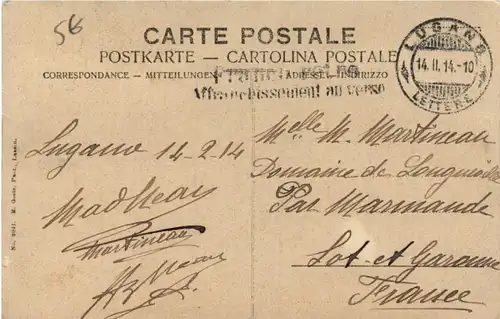 56
CARTE POSTALE
POSTKARTE - CARTOLINA POSTALE
CORRESPONDANCE - MITTEILUNGEN ADRESSE - INDIRIZZO
Affranchissement au verso
LUGANO
14.II.14.-10
LETTERE
Lugano 14-2-14
Martineau
Melle M. Martineau
Domaine de
Par Marmande
Lot-et-Garonne
France